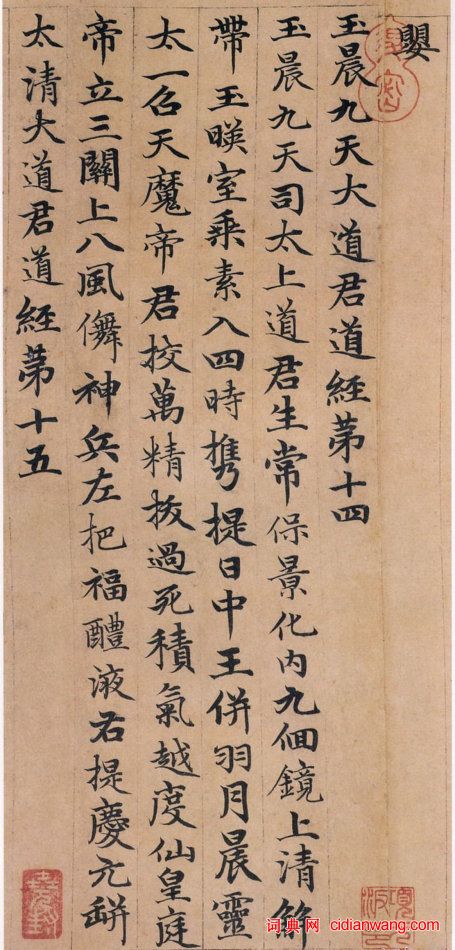 嬰
玉晨九天大道君道經苐十四
玉晨九天司太上道君生常保景化内九佪鏡上清解
帶玉暎室乘素入四時携提日中王併羽月晨靈
太一召天魔帝君挍萬精拔過死積氣越度仙皇庭
帝立三關上八風儛神兵左把福醴液右提慶元缾
太清大道君道經苐十五
词典网 cidianwang.com